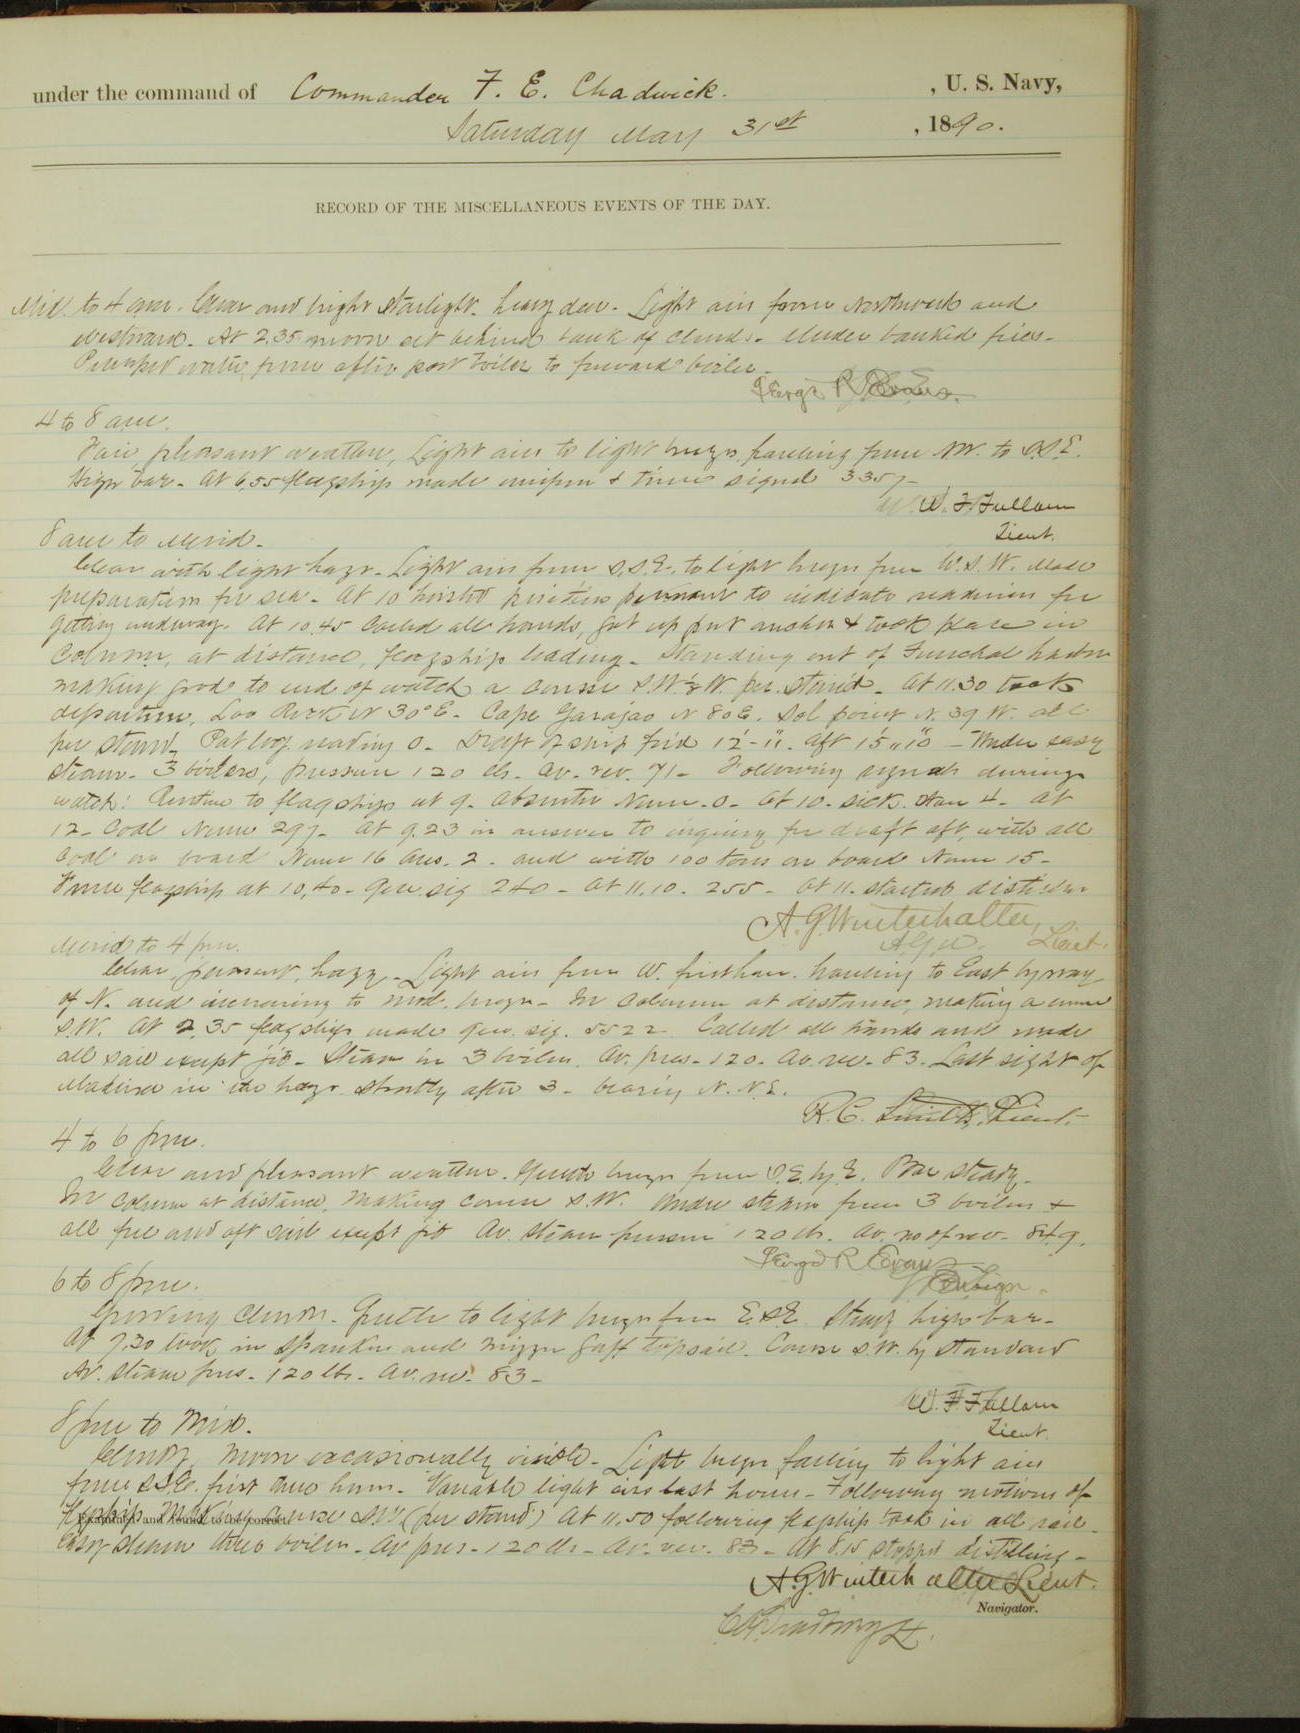 under the command of Commander F. E. Chadwick. , U. S. Navy,
Saturday May 31st , 1890.
RECORD OF THE MISCELLANEOUS EVENTS OF THE DAY.
Mid. to 4 am. Clear and bright starlight. heavy dew. Light airs from Northward and
westward. At 2.35 moon set behind bank of clouds. Under banked fires.
Pumped water from after port boiler to forward boiler.
4 to 8 am.
Fair pleasant weather, Light airs to light breeze, hauling from NW. to S.S.E.
High bar. At 6.55 flagship made uniform & time signal 3357
W. F. Fullam
Lieut.
8 am to Merid.
Clear with light haze. Light airs from S.S.E. to light breeze from W.S.W. Made
preparations for sea. At 10 hoisted position pennant to indicate readiness for
getting underway. At 10.45 called all hands, got up port anchor & took place in
column, at distance, flagship leading. Standing out of Funchal harbor
making good to end of watch a course S.W½W. per. stand'd. At 11.30 took
departure, Loo Rock N 30° E. Cape Garajao N 80 E. Sol point N. 39 W. all
per stand. Pat log reading 0. Draft of ship for'd 12'-11". aft 15'"10" - Under easy
steam. 3 boilers, pressure 120 lbs. av. rev. 71. Following signals during
watch: Routine to flagship at 9. absentee Num. 0. At 10. sick. Num 4. At
12. Coal Num 297. At 9.23 in answer to inquiry for draft aft, with all
coal on board Num 16 Ans. 2. and with 100 tons on board Num 15.
From flagship at 10.40. Gen. sig 240 - At 11.10. 255 - At 11. started distiller
A. G. Winterhalter,
Lieut.
Merid to 4 pm.
Clear, pleasant, hazy. Light airs from W. first hour. hauling to East by way
of N. and increasing to mod. breeze. In column at distance, making course
S.W. At 2.35 flagship made gen. sig. 5522 Called all hands and made
all sail except jib. Steam in 3 boilers. Av. pres. 120. Av. rev. 83. Last sight of
Madeira in the haze shortly after 3. bearing N. N.E.
R. C. Smith, Lieut.
4 to 6 pm.
Clear and pleasant weather. Gentle breeze from S.E. by E. Bar steady.
In column at distance, making course S.W. Under steam from 3 boilers &
all fore and aft sail except jib Av. steam pressure 120 lbs. Av. no of rev. 84.9.
6 to 8 pm.
Growing cloudy. Gentle to light breeze from E.S.E. Steady high bar.
At 7.20 took in spanker and mizzen gaff topsail. Course S.W. by standard
Av. steam pres. 120 lbs. Av. rev. 83 -
W. F. Fullam
Lieut.
8 pm to Mid.
Cloudy, moon occasionally visible. Light breeze falling to light airs
from S.S.E. first two hours. Variable light airs last hours. Following motions of
flagship. Making course SW (per stand'd) At 11.50 following flagship took in all sail.
Examined and found to be correct.
Easy steam three boilers. Av pres. 120 lbs - Av. rev. 83 - At 8.15 stopped distilling -
A. G. Winterhalter Lieut.
Navigator.